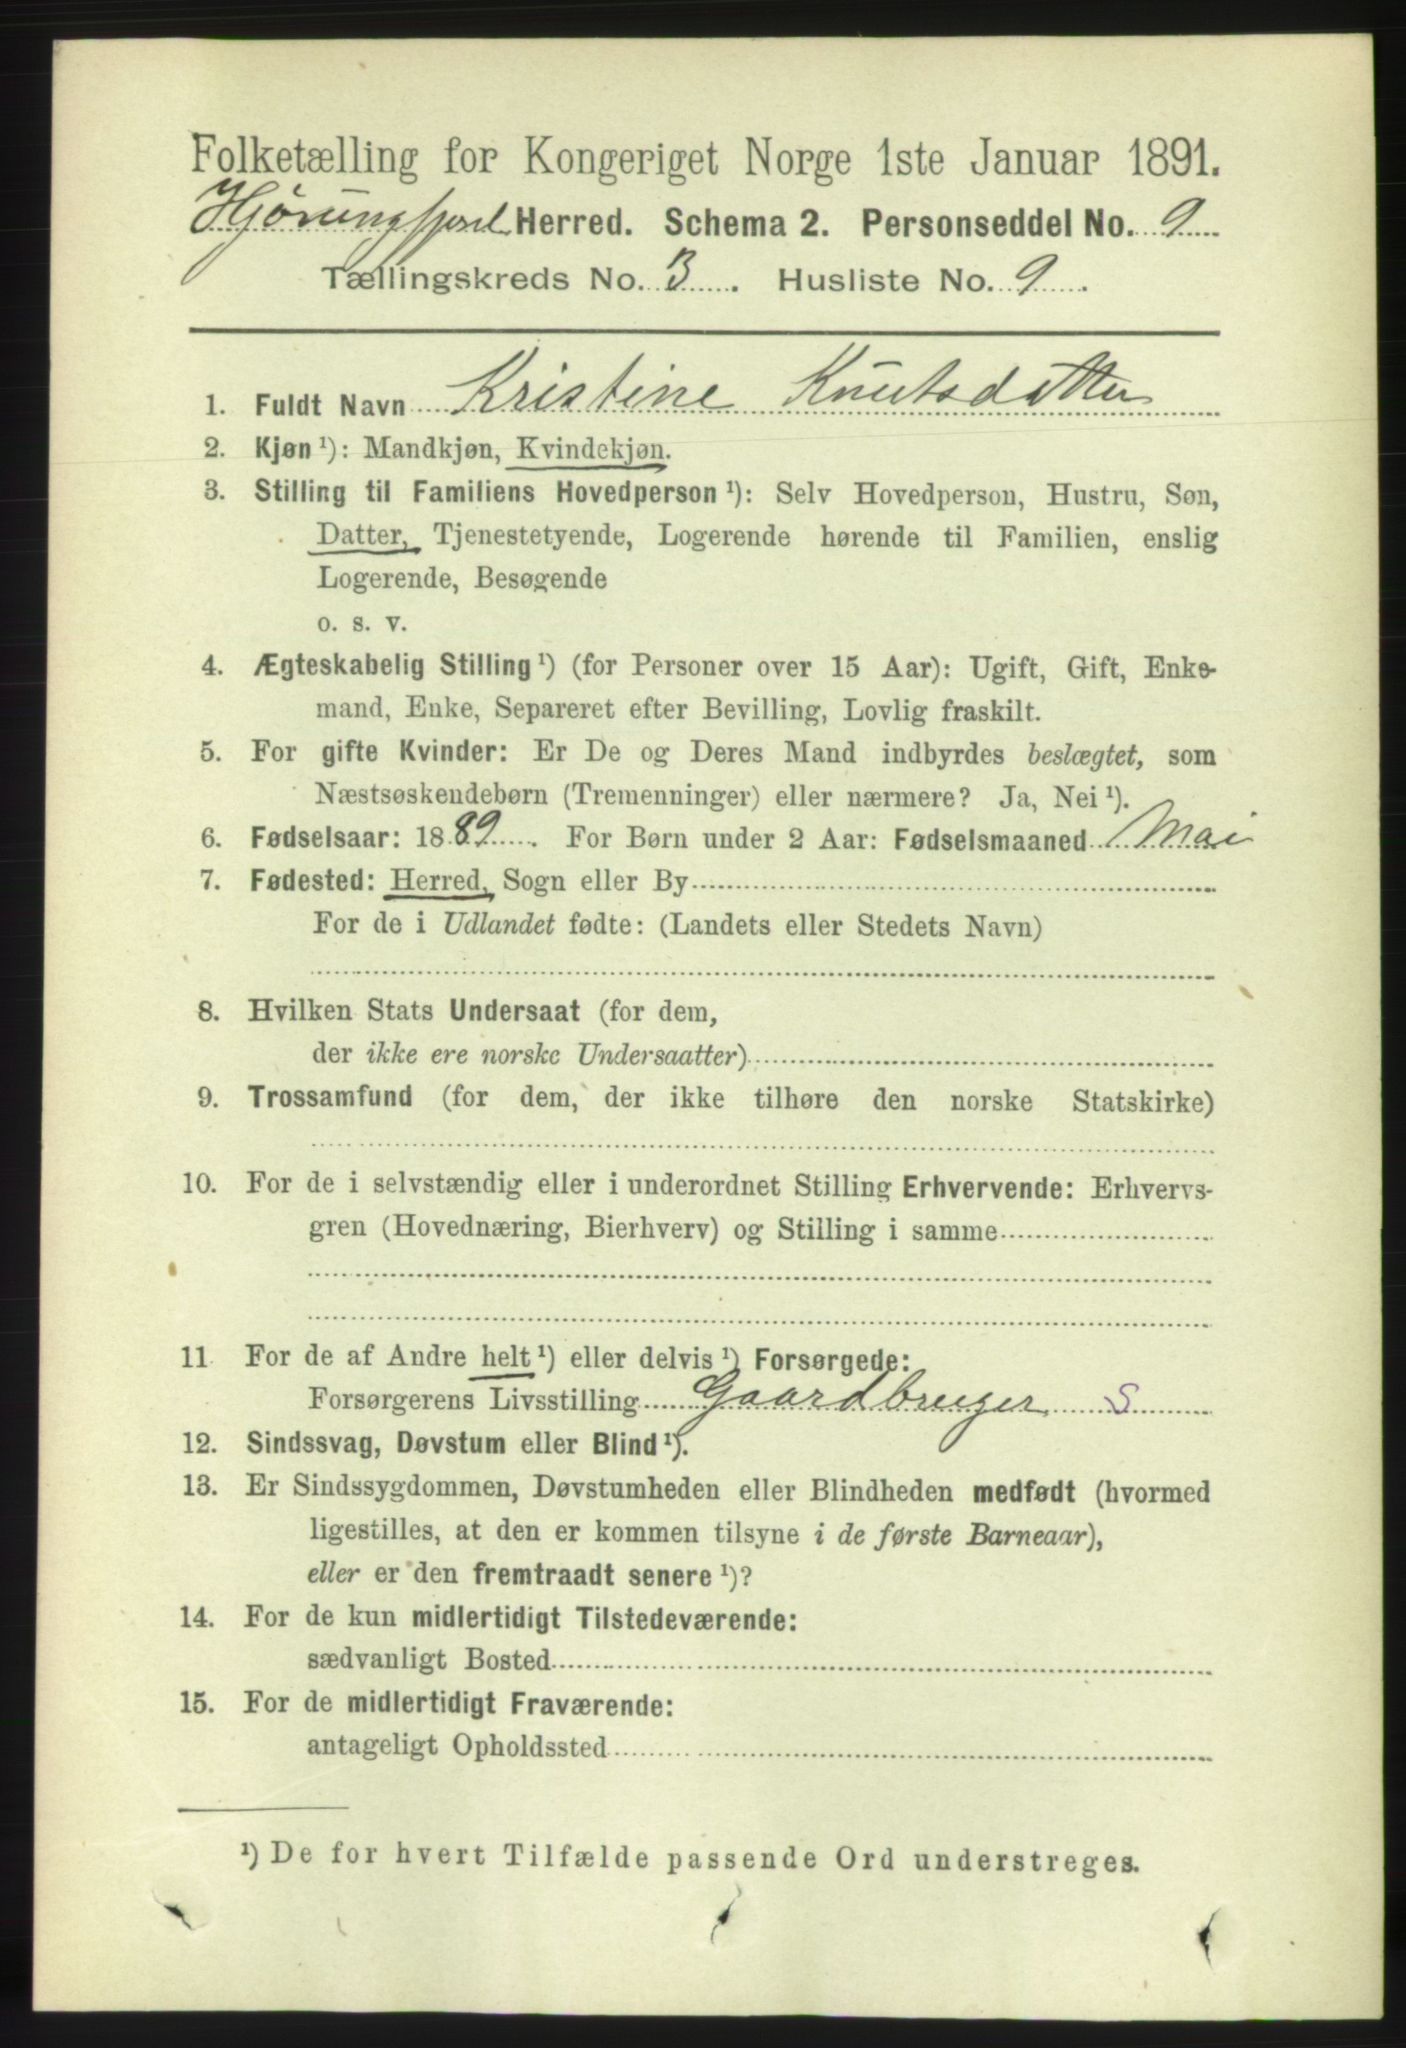 Folketælling for Kongeriget Norge 1ste Januar 1891.
Hjørungfjord Herred. Schema 2. Personseddel No. 9
Tællingskreds No. 3. Husliste No. 9.
1. Fuldt Navn Kristine Knutsdatter
2. Kjøn ¹): Mandkjøn, Kvindekjøn.
3. Stilling til Familiens Hovedperson ¹): Selv Hovedperson, Hustru, Søn,
Datter, Tjenestetyende, Logerende hørende til Familien, enslig
Logerende, Besøgende
o. s. v.
4. Ægteskabelig Stilling ¹) (for Personer over 15 Aar): Ugift, Gift, Enke-
mand, Enke, Separeret efter Bevilling, Lovlig fraskilt.
5. For gifte Kvinder: Er De og Deres Mand indbyrdes beslægtet, som
Næstsøskendebørn (Tremenninger) eller nærmere? Ja, Nei ¹).
6. Fødselsaar: 1889. For Børn under 2 Aar: Fødselsmaaned Mai
7. Fødested: Herred, Sogn eller By
For de i Udlandet fødte: (Landets eller Stedets Navn)
8. Hvilken Stats Undersaat (for dem,
der ikke ere norske Undersaatter)
9. Trossamfund (for dem, der ikke tilhøre den norske Statskirke)
10. For de i selvstændig eller i underordnet Stilling Erhvervende: Erhvervs-
gren (Hovednæring, Bierhverv) og Stilling i samme
11 For de af Andre helt ¹) eller delvis ¹) Forsørgede:
Forsørgerens Livsstilling Gaardbruger S
12. Sindssvag, Døvstum eller Blind ¹).
13. Er Sindssygdommen, Døvstumheden eller Blindheden medfødt (hvormed
ligestilles, at den er kommen tilsyne i de første Barneaar),
eller er den fremtraadt senere ¹)?
14. For de kun midlertidigt Tilstedeværende:
sædvanligt Bosted
15. For de midlertidigt Fraværende:
antageligt Opholdssted
¹) De for hvert Tilfælde passende Ord understreges.